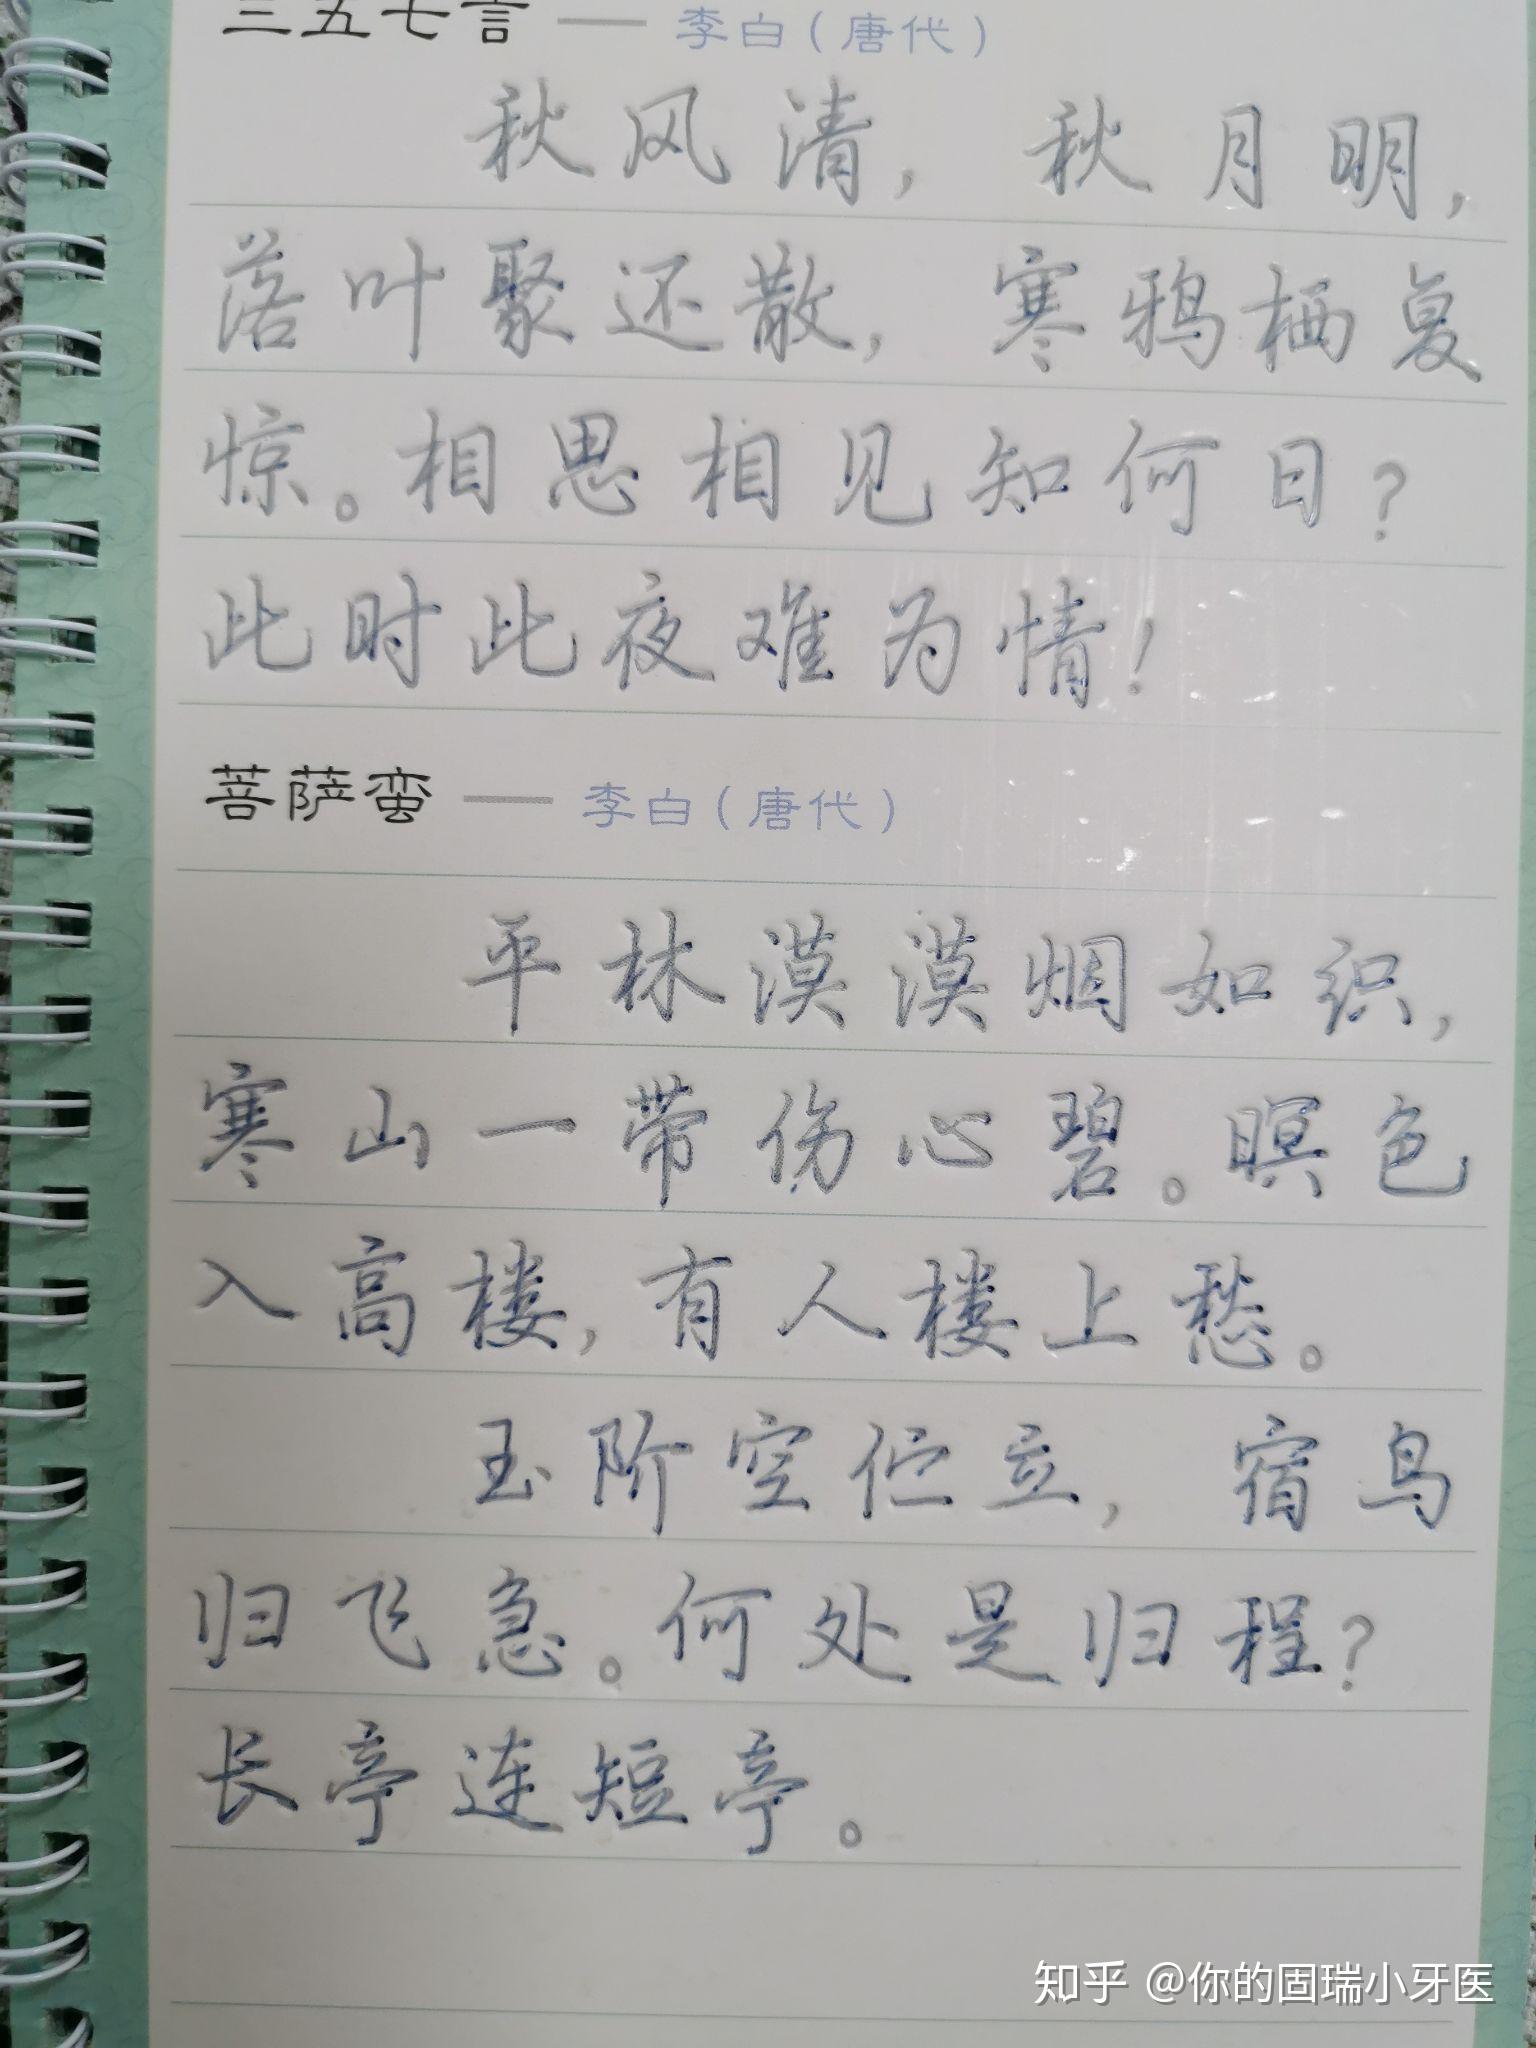 三五七言 — 李白（唐代）
秋风清，秋月明，
落叶聚还散，寒鸦栖复
惊。相思相见知何日？
此时此夜难为情！
菩萨蛮 — 李白（唐代）
平林漠漠烟如织，
寒山一带伤心碧。暝色
入高楼，有人楼上愁。
玉阶空伫立，宿鸟
归飞急。何处是归程？
长亭连短亭。
知乎 @你的固瑞小牙医